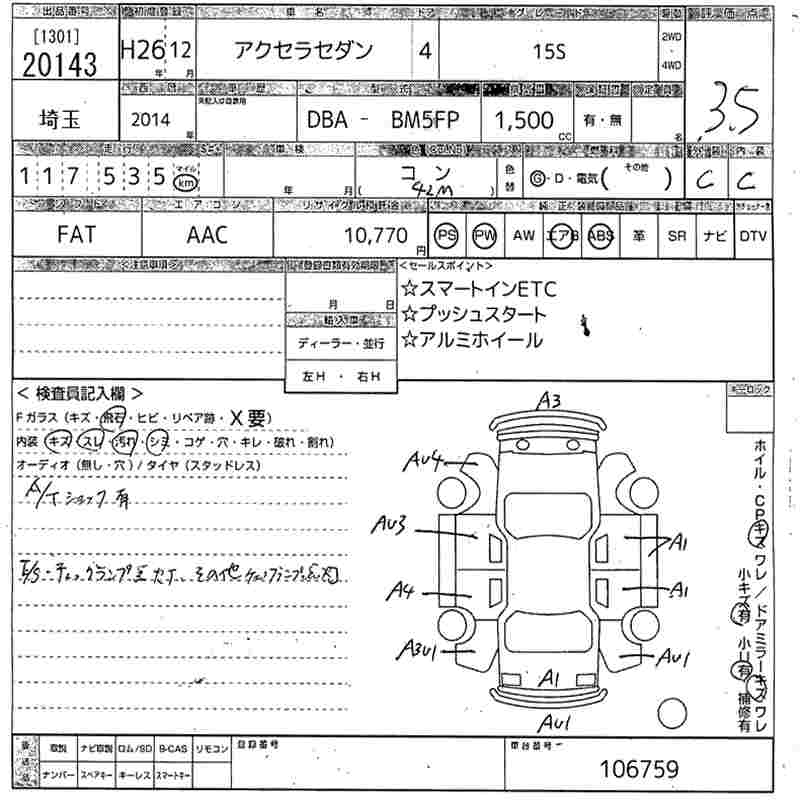 出品番号 初度登録 車名 ドア グレード 駆動 評価点
[1301]
20143 H26年 12月 アクセラセダン 4 15S 2WD・4WD 3.5
西暦 車歴 型式 排気量
埼玉 2014年 DBA - BM5FP 1,500CC 有・無 名
走行 車検 燃料 外装 内装
117535 マイル km 年 月 コン (42M) 色替 G・D・電気(その他 ) C C
シフト エアコン リサイクル預託金
FAT AAC 10,770円 PS PW AW エアB ABS 革 SR ナビ DTV
<注意事項> 登録書類有効期限 <セールスポイント>
月 日
☆スマートインETC
☆プッシュスタート
☆アルミホイール
輸入車
ディーラー・並行
左H・右H
<検査員記入欄>
キーロック
Fガラス(キズ・飛石・ヒビ・リペア跡・X要)
内装(キズ・スレ・汚れ・シミ・コゲ・穴・キレ・破れ・割れ)
オーディオ(無し・穴)/タイヤ(スタッドレス)
A/Tショック有
A3
AU4
AU3 A1
A4 A1
A3U1 AU1
A1
AU1
ホイル・CPキズワレ/ドアミラーキズワレ
小キズ有 小U有 補修有
取説 ナビ取説 ロム/SD B-CAS リモコン 登録番号 車台番号
ナンバー スペアキー キーレス スマートキー
106759